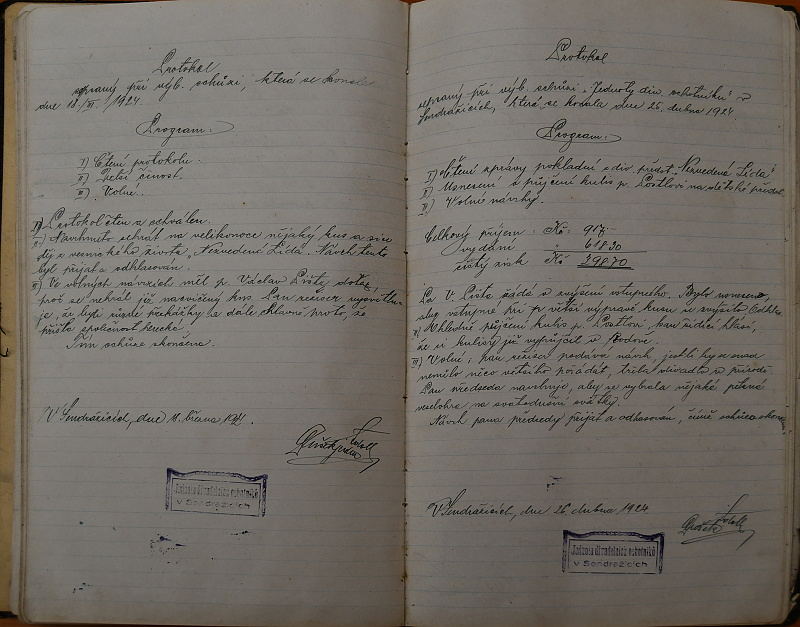 Protokol
sepsaný při výb. schůzi, která se konala
dne 18./III. 1924.
Program:
I) Čtení protokolu.
II) Další činost.
III) Volné.
I) Protokol čten a schválen.
II) Navrhnuto sehrát na velikonoce nějaký kus a sice
děj z vesnického života „Nezvedená Lída". Návrh tento
byl přijat a odhlasován.
III) Ve volných návrzích měl p. Václav Lišta dotaz,
proč se nehrál již nacvičený kus. Pan režisér vysvětlu-
je, že byli různé překážky a dále hlavně proto, že
přišla společnost herecká.
Tím schůze skončena.
V Sendražicích, dne 11. března 1924.
Jednota divadelních ochotníků
v Sendražicích
Protokol
sepsaný při výb. schůzi „Jednoty div. ochotníků" v
Sendražicích, která se konala dne 26. dubna 1924.
Program:
I) Čtení zprávy pokladní z div. předst. „Nezvedená Lída"
II) Usnesení o půjčení kulis p. Postlovi na dětské předst.
III) Volné návrhy.
Celkový příjem Kč: 917
vydání " 618.30
čistý zisk Kč 298.70
Pan V. Lišta žádá o zvýšení vstupného. Bylo usneseno,
aby vstupné při větší výpravě kusu se zvýšilo.
II) Ohledně půjčení kulis p. Postlovi, pan řídící hlásí,
že si kulisy již vypůjčil v Rodově.
III) Volné; pan režisér podává návrh, jestli by se snad
nemělo něco většího pořádat, třeba divadlo v přírodě.
Pan předseda navrhuje, aby se vybrala nějaká pěkná
veselohra na svatodušní svátky.
Návrh pana předsedy přijat a odhlasován, čímž schůze skončena.
V Sendražicích, dne 26. dubna 1924
Jednota divadelních ochotníků
v Sendražicích